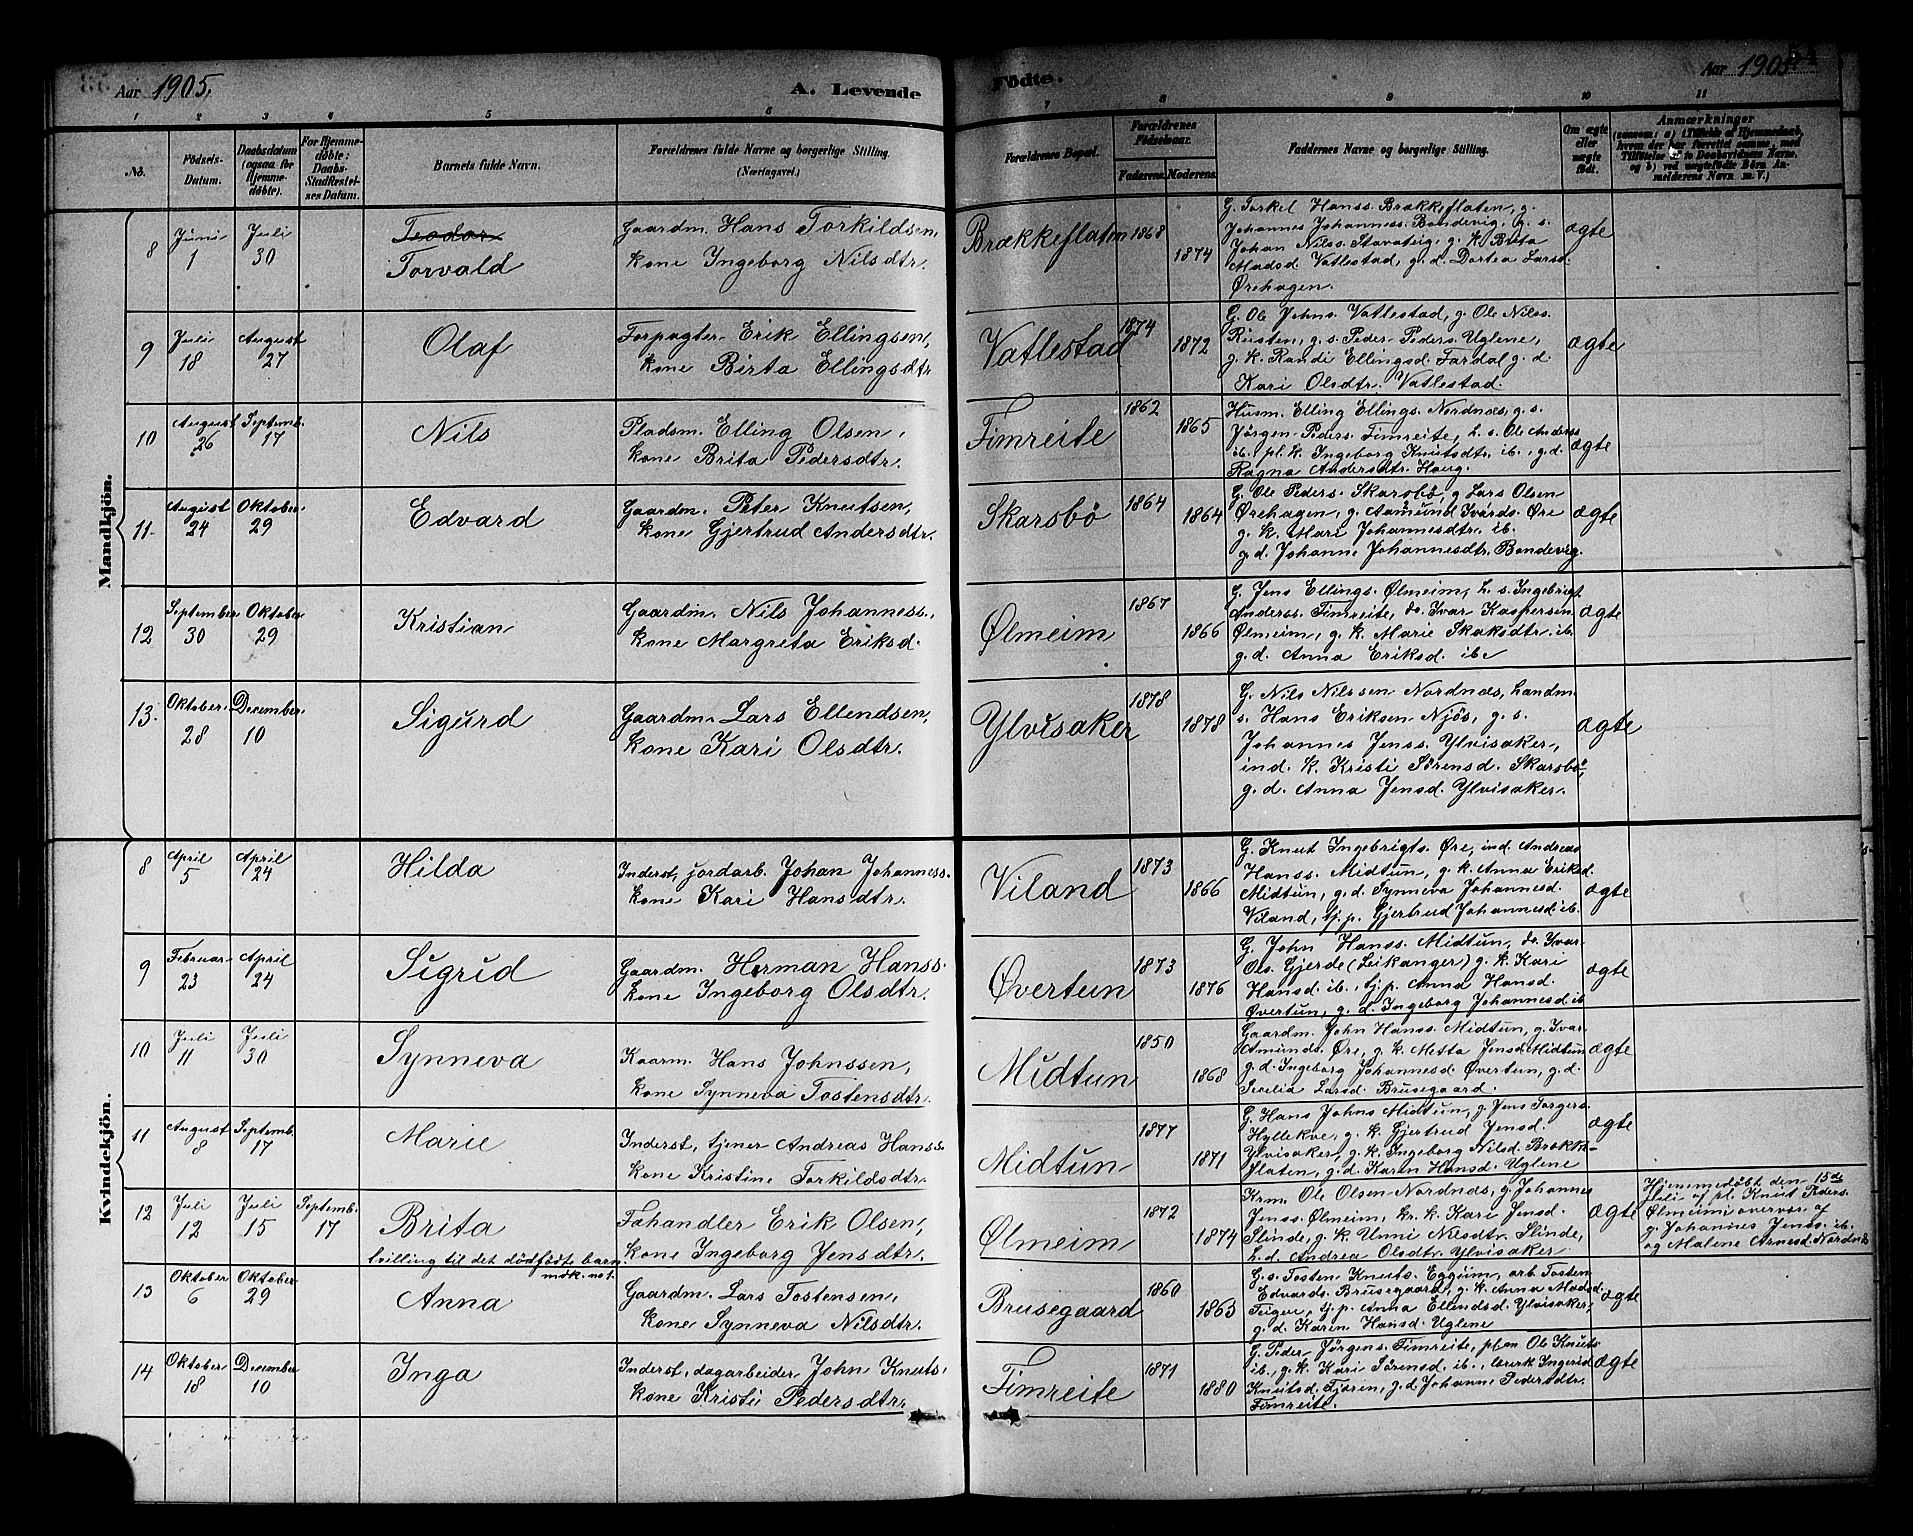 Aar 1905.
A. Levende
Födte.
Aar 1905
1 2 3 4 5 6 7 8 9 10 11
No.
Födsels-Datum.
Daabsdatum (ogsaa for Hjemmedöbte).
For Hjemmedöbte: Daabs-Stadfæstelses Datum.
Barnets fulde Navn.
Forældrenes fulde Navne og borgerlige Stilling.
(Næringsvei.)
Forældrenes Bopæl.
Forældrenes Födselsaar.
Faderens. Moderens.
Faddernes Navne og borgerlige Stilling.
Om ægte eller uægte födt.
Anmærkninger
(saasom: a) i Tilfælde af Hjemmedaab, hvem der har forrettet samme, med Tilföielse af to Daabsvidners Navne, og b) ved uægtefödte Börn Anmelderens Navn m. V.)
Mandkjön.
8 Juni 1 Juli 30
Teodor
Torvald
Gaardm. Hans Torkildsen,
kone Ingeborg Nilsdtr.
Brækkeflaten 1868 1874
G. Torkel Hanss. Brækkeflaten, g.
Johannes Johanness. Bondevig, g. s.
Johan Nilss. Stavateig, g. k. Brita
Madsd. Vatlestad, g. d. Dortea Larsd.
Ørehagen.
ægte
9 Juli 18 August 27
Olaf
Forpagter Erik Ellingsen,
kone Birta Ellingsdtr
Vatlestad 1874 1872
G. Ole Johns. Vatlestad, g. Ole Nilss.
Rusten, g. s. Peder Peders. Uglene,
g. k. Randi Ellingsd. Fardal g. d.
Kari Olsdtr. Vatlestad.
ægte
10 August 26 Septemb. 17
Nils
Pladsm. Elling Olsen
kone Brita Pedersdtr.
Fimreite 1862 1865
Husm. Elling Ellings. Nordnæs, g. s.
Jörgen Peders. Fimreite, h. s. Ole Anderss
ib., pl. k. Ingeborg Knutsdtr. ib., g. d.
Ragna Andersdtr. Haug.
ægte
11. August 24 Oktober 29
Edvard
Gaardm. Peter Knutsen,
kone Gjertrud Andersdtr.
Skarsbö 1864 1864
G. Ole Peders. Skarsbö, g Lars Olsen
Ørehagen, g. Aamund Ivards. Øre
g. k. Mari Johannesdtr. ib.
g. d. Johanne Johannesdtr. Bondevig.
ægte
12 September 30 Oktober 29
Kristian
Gaardm. Nils Johanness.,
kone Margreta Eriksd.
Ølmeim 1867 1866
G. Jens Ellings. Ølmeim, h. s. Ingebrigt
Anderss. Fimreite, do. Ivar Kaspersen
Ølmeim, g. k. Marie Skaksdtr. ib.
g. d. Anna Eriksd. ib.
ægte
13. Oktober. 28 December. 10
Sigurd
Gaardm. Lars Ellendsen,
kone Kari Olsdtr.
Ylvisaker 1878 1878
G. Nils Nilssen Nordnæs, handm.
s. Hans Eriksen Njös, g. s.
Johannes Jenss. Ylvisaker,
ind. k. Kristi Sörensd. Skarsbö,
g. d. Anna Jensd. Ylvisaker.
ægte
Kvindekjön.
8 April 5 April 24
Hilda
Inderst, jordarb. Johan Johanness.
kone Kari Hansdtr.
Viland 1873 1866
G. Knut Ingebrigts. Øre, ind. Andreas
Hanss. Midtun, g. k. Anna Eriksd.
Midtun, g. d. Synneva Johannesd.
Viland, tj. p. Gjertrud Johannesd. ib.
ægte
9 Februar 23 April 24
Sigrid
Gaardm. Herman Hanss.
kone Ingeborg Olsdtr.
Øvertun 1873 1876
G. John Hanss. Midtun, do. Ivar
Ols. Gjerde (Leikanger) g. k. Kari
Hansd. ib., tj. p. Anna Hansd.
Øvertun, g. d. Ingeborg Johannesd. ib
ægte
10 Juli 11 Juli 30
Synneva
Kaarm. Hans Johnssen,
kone Synneva Tostensdtr.
Midtun 1850 1868
Gaardm. John Hanss. Midtun, g. Ivar
Amunds. Øre, g. k. Metta Jensd. Midtun
g. d. Ingeborg Johannesd. Øvertun, g. d.
Secelia Larsd. Brusegaard.
ægte
11 August 8 Septemb. 17
Marie
Inderst, tjener Andreas Hanss.
kone Kristine Torkildsdtr.
Midtun 1877 1871
G. Hans Johns Midtun, g. Jens Torgers.
Hyllekve, g. k. Gjertrud Jensd.
Ylvisaker, g. k. Ingeborg Nilsd. Brækk-
flaten, g. d. Karen Hansd. Uglene
ægte
12 Juli 12 Juli 15 Septemb. 17
Brita
tvilling til det dödfödte barn
mdk. no 1.
Fæhandler Erik Olsen,
kone Ingeborg Jensdtr.
Ølmeim 1872 1874
Krm. Ole Olsen Nordnæs, g. Johannes
Jenss. Ølmeim, kr. k. Kari Jensd.
Slinde, g. k. Unni Nilsdtr. Slinde,
h. d. Andrea Olsdtr. Ylvisaker
ægte
Hjemmedöbt den 15de
Juli af pl. Knut Peders.
Ølmeim i overvær. af
g. Johannes Jenss. ib.
og Malene Arnesd. Nordnæs
13 Oktober 6 Oktober 29
Anna
Gaardm. Lars Tostensen,
kone Synneva Nilsdtr.
Brusegaard 1860 1863
G. s. Tosten Knuts. Eggum, arb. Tosten
Edvards. Brusegaard, g. k. Anna Madsd.
Teigen, tj. p. Anna Ellendsd. Ylvisaker,
g. d. Karen Hansd. Uglene
ægte
14 Oktober 18 December 10
Inga
Inderst, dagarbeider John Knuts.
kone Kristi Pedersdtr.
Fimreite 1871 1880
G. Peder Jörgens. Fimreite, pl.m Ole Knuts
ib., g. k. Kari Sörensd. ib., Ingerid
Knutsd. Fjæren, g. d. Johanne Pedersdtr.
Fimreite.
ægte